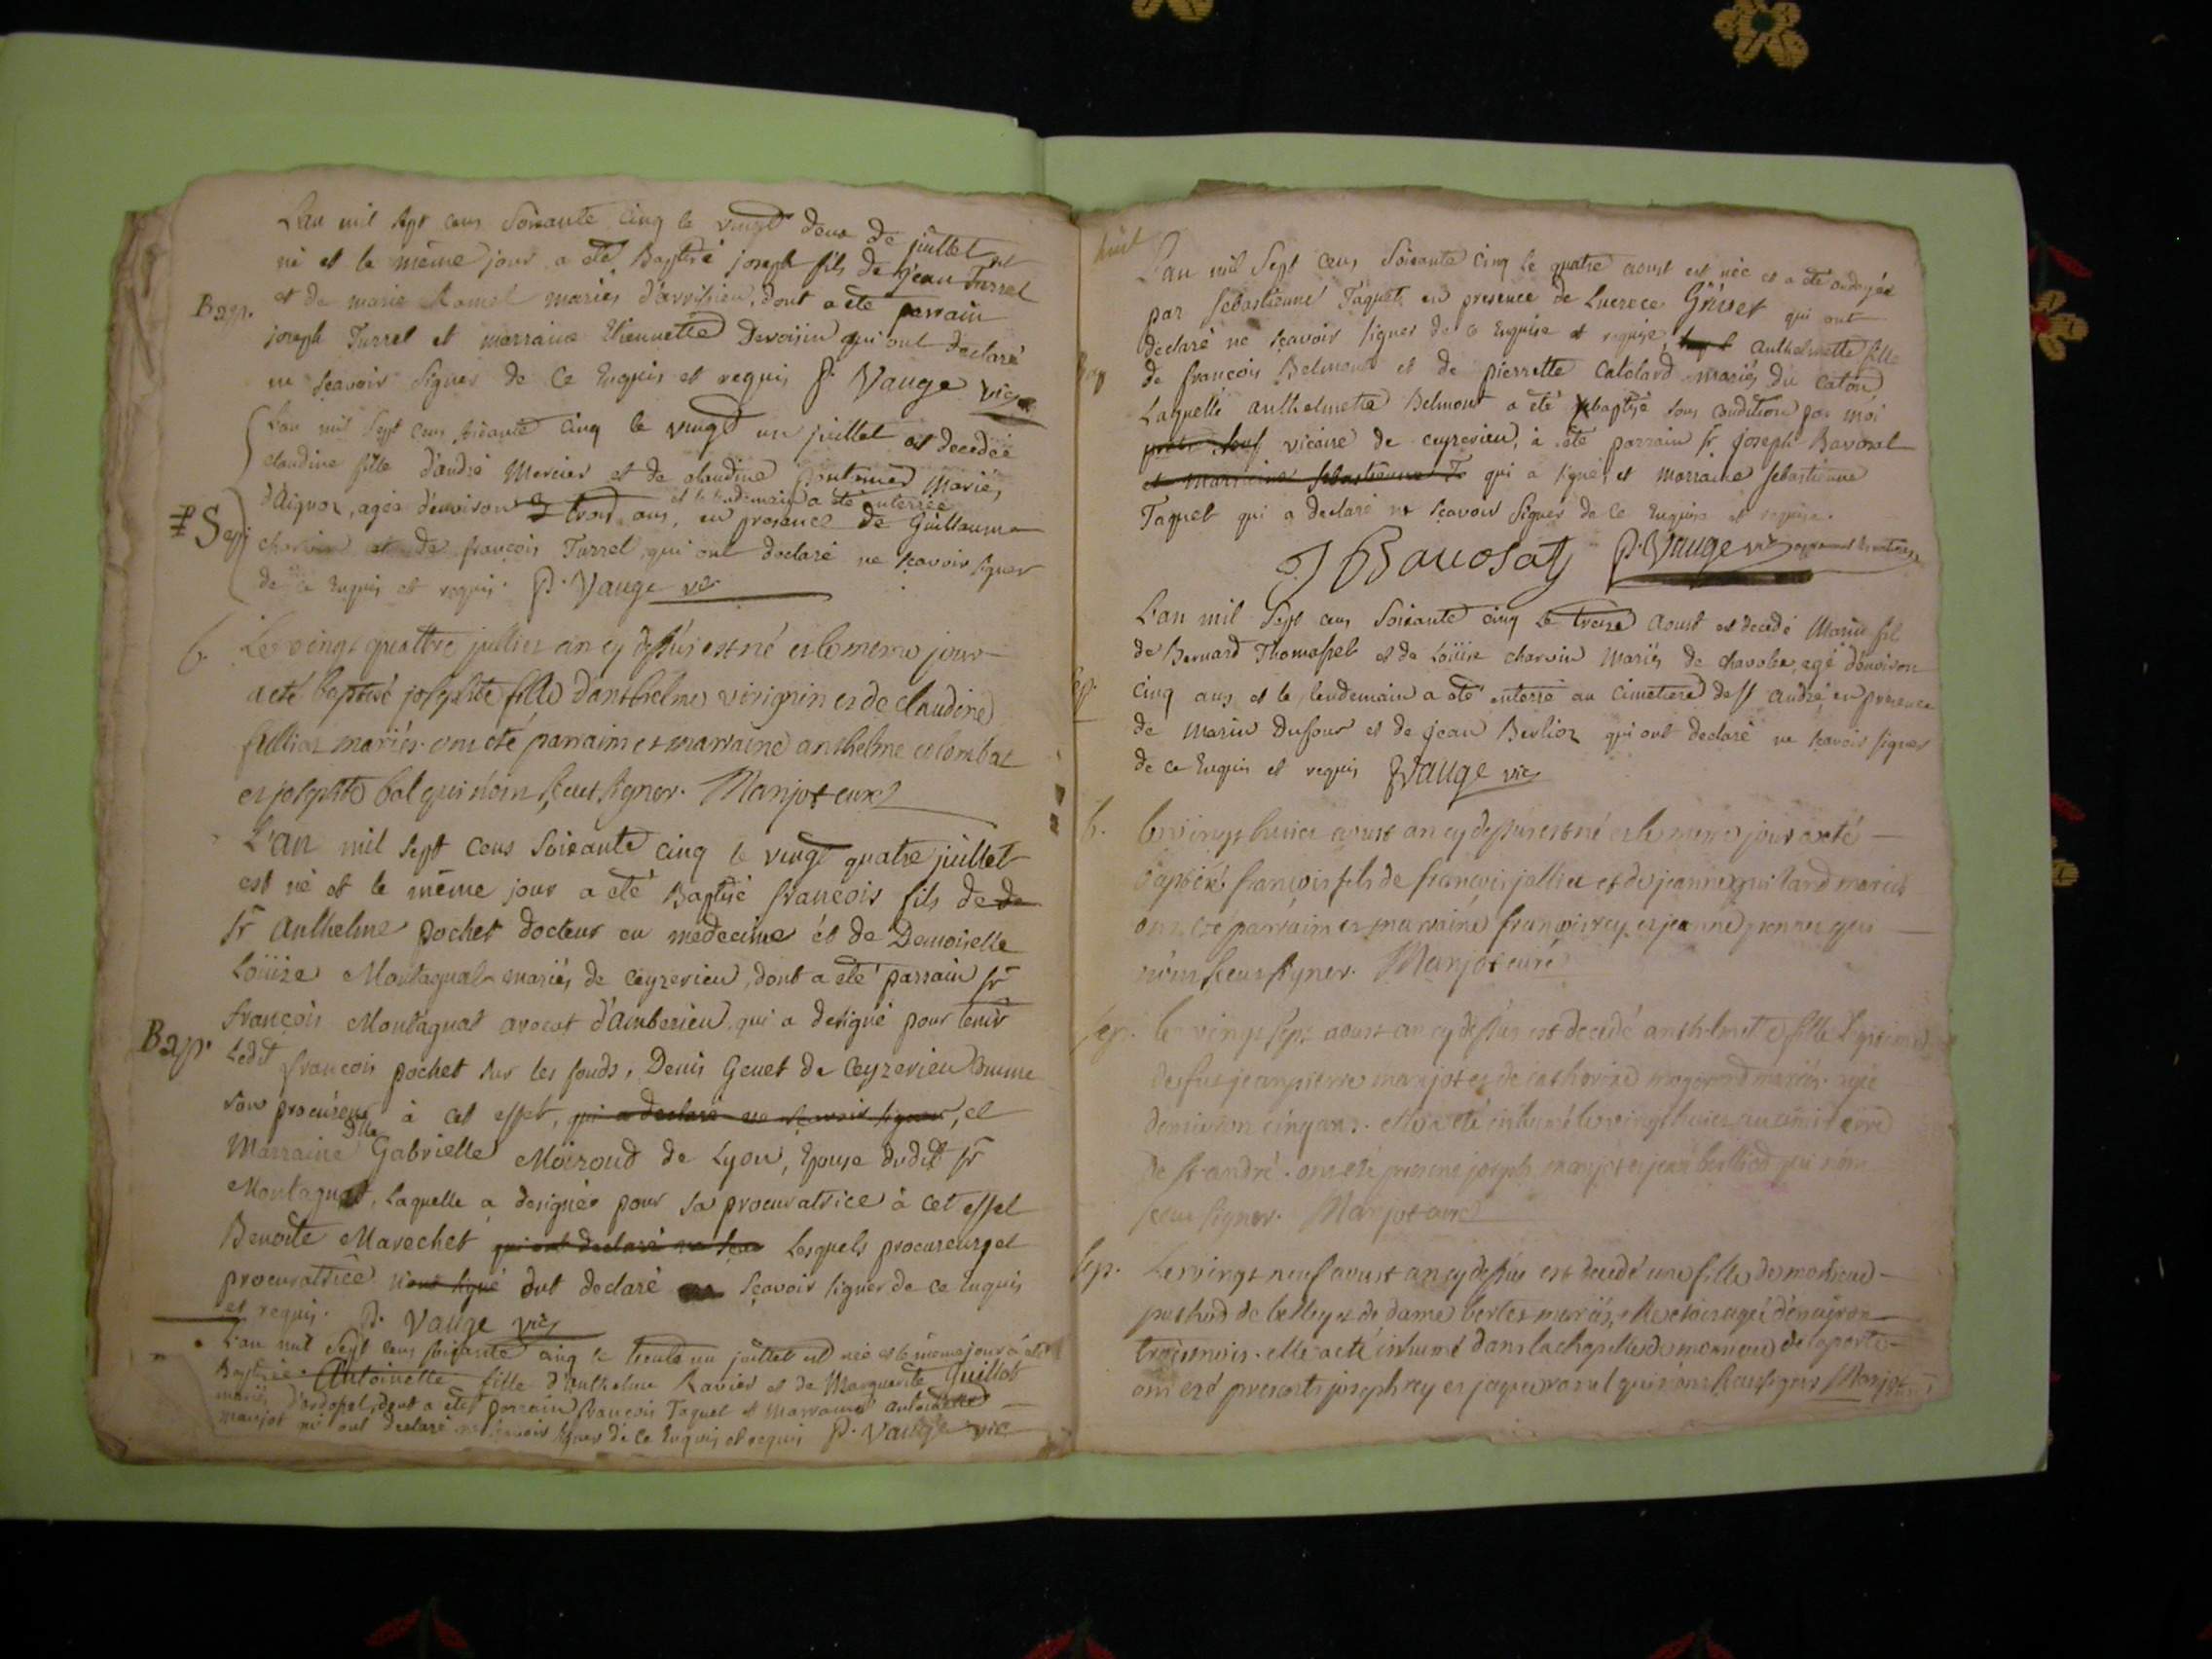 L'an mil sept cens soixante cinq le vingt deux de juillet est
né et le même jour a eté Baptisé joseph fils de jean Turrel
Bap. et de marie Ramel mariés d'avrissieu, dont a eté parrain
joseph Turrel et marraine Etiennette Devoisin qui ont declaré
ne sçavoir signer de ce Enquis et requis P. Vauge vic
L'an mil sept cens soixante cinq le vingt un juillet est decedée
claudine fille d'andré Mercier et de claudine Pontanier Mariés
et le lendemain a été enterrée
Sep. d'Aignoz, agée d'environ trois ans, en presence de Guillaume
charvin et de françois Turrel, qui ont declaré ne sçavoir signer
de ce enquis et requis. P. Vauge vic
b. Le vingt quattre juillet an cy dessus est né et le meme jour
a eté baptisé josephte fille d'anthelme virignin et de claudine
fillion mariés. ont eté parrain et marraine anthelme colombat
et josephte bal qui n'ont sceut signer. Marjot curé
L'an mil sept cens soixante cinq le vingt quatre juillet
est né et le même jour a eté Baptisé françois fils de de
Sr Anthelme Pochet docteur en medecine et de Demoiselle
Loüize Montagnat mariés de ceyzerieu, dont a eté parrain Sr
françois Montagnat avocat d'amberieu, qui a designé pour tenir
Bap. Ledit françois pochet sur les fonds, Denis Genet de Ceyzerieu Comme
son procureur à cet effet, qui a declaré ne sçavoir signer, et
Marraine Dlle Gabrielle Moiroud de Lyon, Epouse dudit Sr
Montagnat, laquelle a designée pour sa procuratrice à cet effet
Benoite Marechet qui ont declaré ne sçav Lesquels procureurs et
procuratrice n'ont signé ont declaré ne sçavoir signer de ce enquis
et requis. P. Vauge vic
L'an mil sept cens soixante cinq le trente un juillet est née et le même jour a eté
Baptisée Antoinette fille d'anthelme Ravier et de Marguerite Guillot
mariés d'ardosset, dont a eté parrain françois Taquet et Marraine antoinette
marjot qui ont declaré ne sçavoir signer de ce Enquis et requis P. Vauge vic
huit
L'an mil sept cens soixante cinq le quatre aoust est née et a eté ondoyée
par sebastienne Taquet en presence de Lucrece Grisset qui ont
declaré ne sçavoir signer de ce Enquise et requise, Anthelmette fille
Bap de françois Belmont et de pierrette Catelard mariés du Caton,
Laquelle anthelmette Belmont a eté baptisé sous condition par moi
vicaire de ceyzerieu, à eté parrain Sr joseph Bavozat
et marraine sebastienne T qui a signé, et marraine sebastienne
Taquet qui a declaré ne sçavoir signer de ce Enquise et requise.
J Bavosat P. Vauge vic
L'an mil sept cens soixante cinq le treize aoust est decedé Marin fil
de Bernard Thomasset et de Loüise charvin Mariés de chavoley, agé d'environ
Sep. cinq ans et le lendemain a eté enterré au cimetiere de St andré, en presence
de Marin Dufour et de jean Berlioz qui ont declaré ne sçavoir signer
de ce Enquis et requis P Vauge vic
b. le vingt huict aoust an cy dessus est né et le meme jour a eté
baptisé françois fils de françois jallier et de jeanne guitand mariés
ont eté parrain et marraine françois rey et jeanne qui
n'ont sceut signer. Marjot curé
sep. le vingt sept aoust an cy dessus est decedé anthelmette fille legitime
de fut jean pierre marjot et de catherine mariés. agée
d'environ cinq ans. elle a eté inhumé le vingt huict au cimitiere
de st andré. ont eté present joseph marjot et jean berthod qui n'ont
sceut signer. Marjot curé
sep. Le vingt neuf aoust an cy dessus est decedé une fille de monsieur
de belley et de dame mariés, elle etoit agée d'environ
trois mois. elle a eté inhumé dans la chapelle de monsieur de laporte
ont eté presents joseph rey et jaque qui n'ont sceut signer Marjot